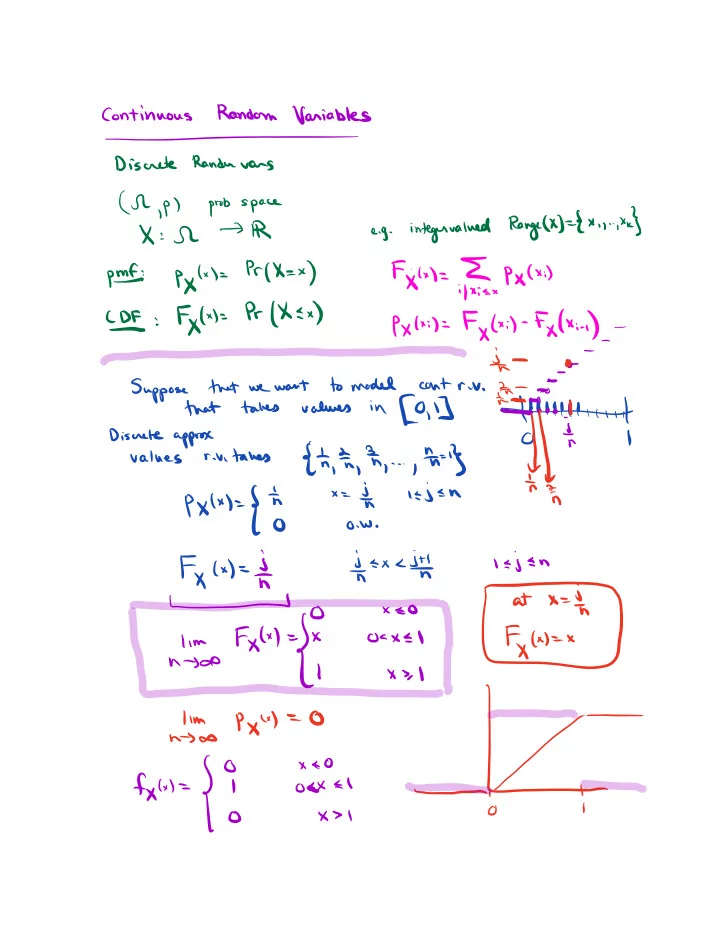 Continuous Random Variables
Discrete Random vars
(Ω, p) prob space
X: Ω → ℝ
e.g. integer valued Range(X)={x₁,..,xₖ}
pmf: p_X(x)= Pr(X=x)
F_X(x)= ∑_{i|xᵢ≤x} p_X(xᵢ)
CDF: F_X(x)= Pr(X≤x)
p_X(xᵢ)= F_X(xᵢ) - F_X(xᵢ₋₁)
Suppose that we want to model cont r.v.
that takes values in [0,1]
j/n
2/n
1/n
0 j/n 1
1/n 2/n
Discrete approx
values r.v. takes {1/n, 2/n, 3/n, ..., n/n=1}
p_X(x)= { 1/n x= j/n 1≤j≤n
0 o.w.
F_X(x)= j/n j/n ≤x< j+1/n 1≤j≤n
lim n→∞ F_X(x)= { 0 x≤0
x 0<x≤1
1 x≥1
at x=j/n
F_X(x)=x
lim n→∞ p_X(x) = 0
f_X(x)= { 0 x≤0
1 0<x≤1
0 x>1
0 1